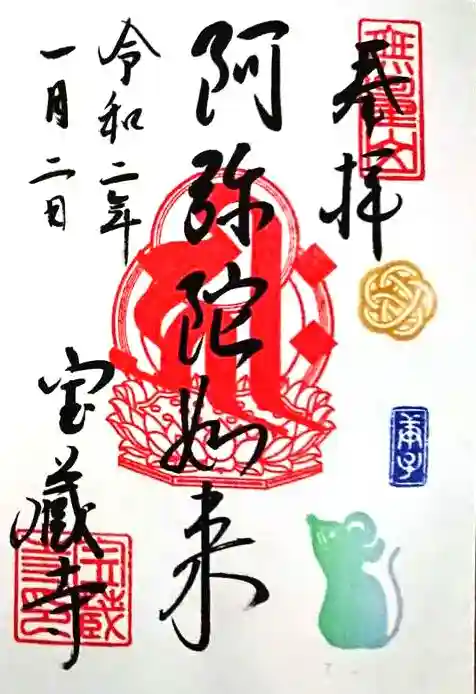 奉拝
阿弥陀如来
令和二年
一月二日
宝蔵寺
庚子